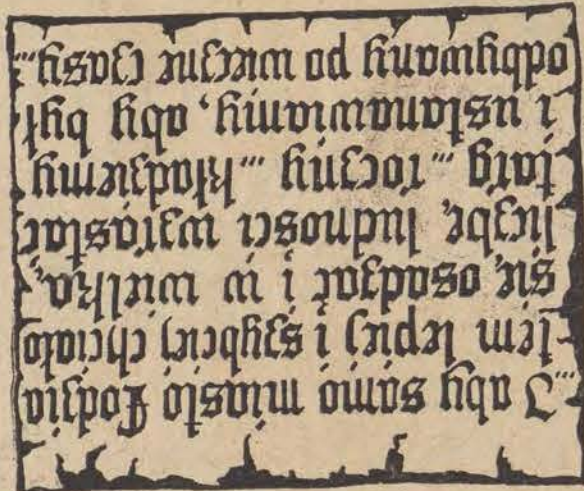 ...I aby samo miasto Łodzia
-tem lepiej i szybciej chciało
się osadzać i w wielką
liczbę ludności wzrastać
targ ...roczny ...kładziemy
i ustanawiamy, aby był
odbywany po wieczne czasy...